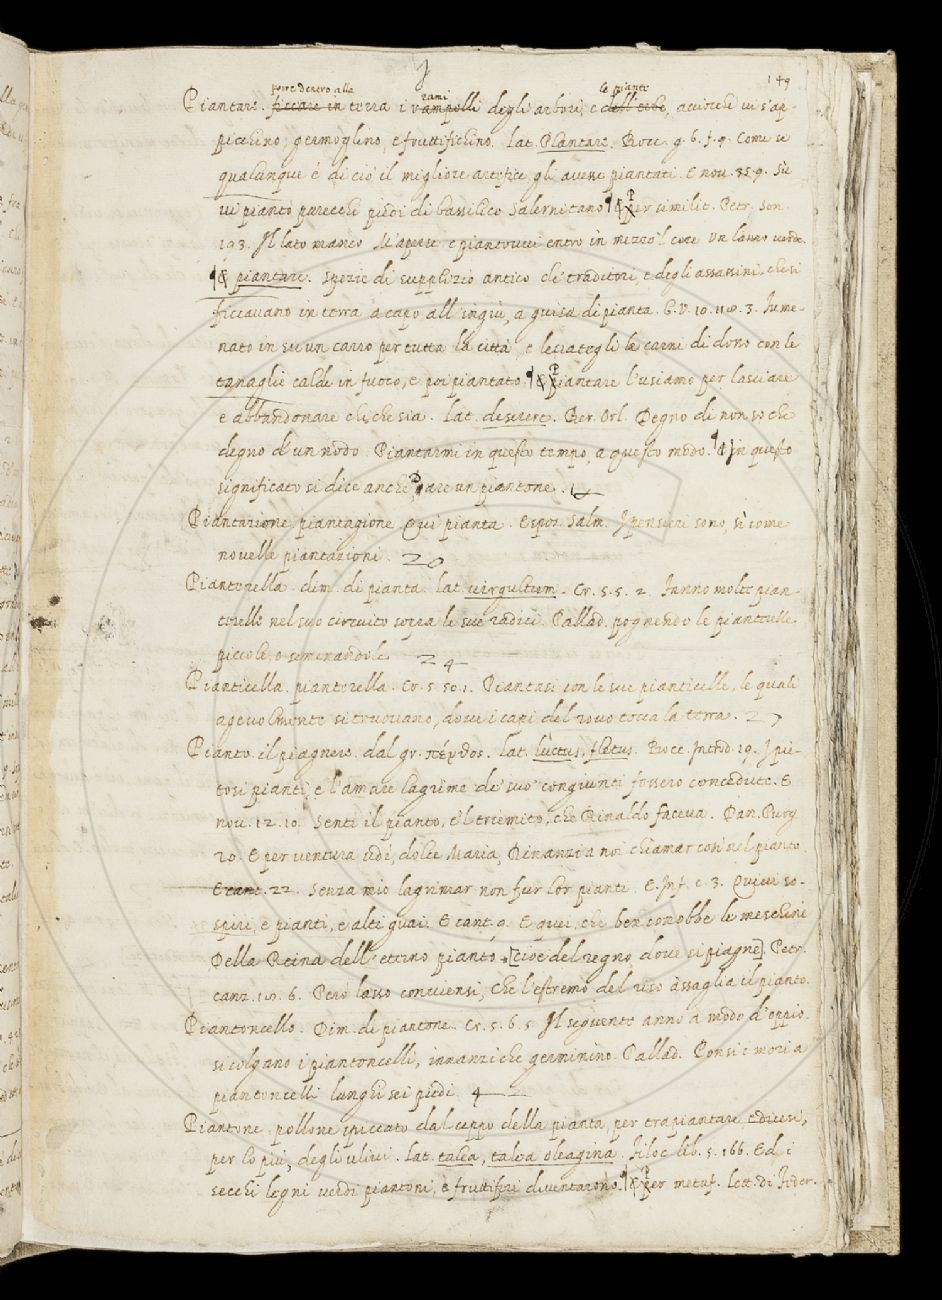 149
porre dentro alla rami le piante
Piantare. ficcare in terra i rampolli degli arbori, e dell'erbe, acciochè vi s'ap-
picchino, germoglino, e fruttifichino. Lat. Plantare. Bocc. g. 6. f. 9. Come se
qualunque è di ciò il migliore artefice gli avesse piantati. E nov. 35. 9. Sù
vi piantò parecchi piedi di bassilico Salernitano ¶ & Per similit. Petr. Son.
193. Il lato manco M'aperse e piantovvi entro in mezzo'l core Un lauro verde.
¶ & piantare. Spezie di supplizio antico de' traditori, e degli assassini, che si
ficcavano in terra a capo all'ingiù, a guisa di pianta. G. V. 10. 3. Il me-
nato in su un carro per tutta la città, e levategli le carni di dosso con le
tanaglie calde in fuoco, e poi piantato. ¶ & Piantare l'usiamo per lasciare
e abbandonare chi che sia. Lat. deserere. Ber. Orl. Degno di non so che
degno d'un nodo Piantarmi in questo tempo, a questo modo. ¶ & in questo
significato si dice anche Dare un piantone. 14
Piantazione piantagione Qui pianta. Espos. Salm. I pensieri sono, sì come
novelle piantazioni. 20
Pianterella. dim. di pianta. lat. virgultum. Cr. 5. 5. 2. Fanno molte pian-
terelle nel suo circuito sopra le sue radici. Pallad. pognendo le pianterelle
piccole, o semenandole 24
Pianticella. pianterella. Cr. 5. 50. 1. Piantasi con le sue pianticelle, le quali
agevolmente si truovano, dove i capi del rovo tocca la terra. 27
Pianto. il piagnere. dal gr. πένθος. Lat. luctus, fletus. Bocc. Introd. 19. I pie-
tosi pianti, e l'amare lagrime de' suo' congiunti fossero concedute. E
nov. 12. 10. Sentì il pianto, e'l tremito, che Rinaldo faceva. Dan. Purg.
20. E per ventura udi', dolce Maria, Dinanzi a noi chiamar così nel pianto.
E cant. 22. Senza mio lagrimar non fur lor pianti. E Inf. c. 3. Quivi so-
spiri, e pianti, e alti guai. E cant. 9. E quei, che ben conobbe le meschine
Della Reina dell'etterno pianto [cioè del regno dove si piagne]. Petr.
canz. 6. Però lasso conviensi, Che l'estremo del riso assaglia il pianto.
Piantoncello. Dim. di piantone. Cr. 5. 6. 5. Il seguente anno a modo d'oppio.
si colgano i piantoncelli, innanzi che germinino. Pallad. Ponsi i mori a
piantoncelli lunghi sei piedi 4
Piantone. pollone spiccato dal ceppo della pianta, per trapiantare e dicesi,
per lo più, degli ulivi. Lat. talea, talea oleagina. Filoc. lib. 5. 166. Ed i
secchi legni verdi piantoni, e fruttiferi diventarono. ¶ & Per metaf. Lett. di Feder.